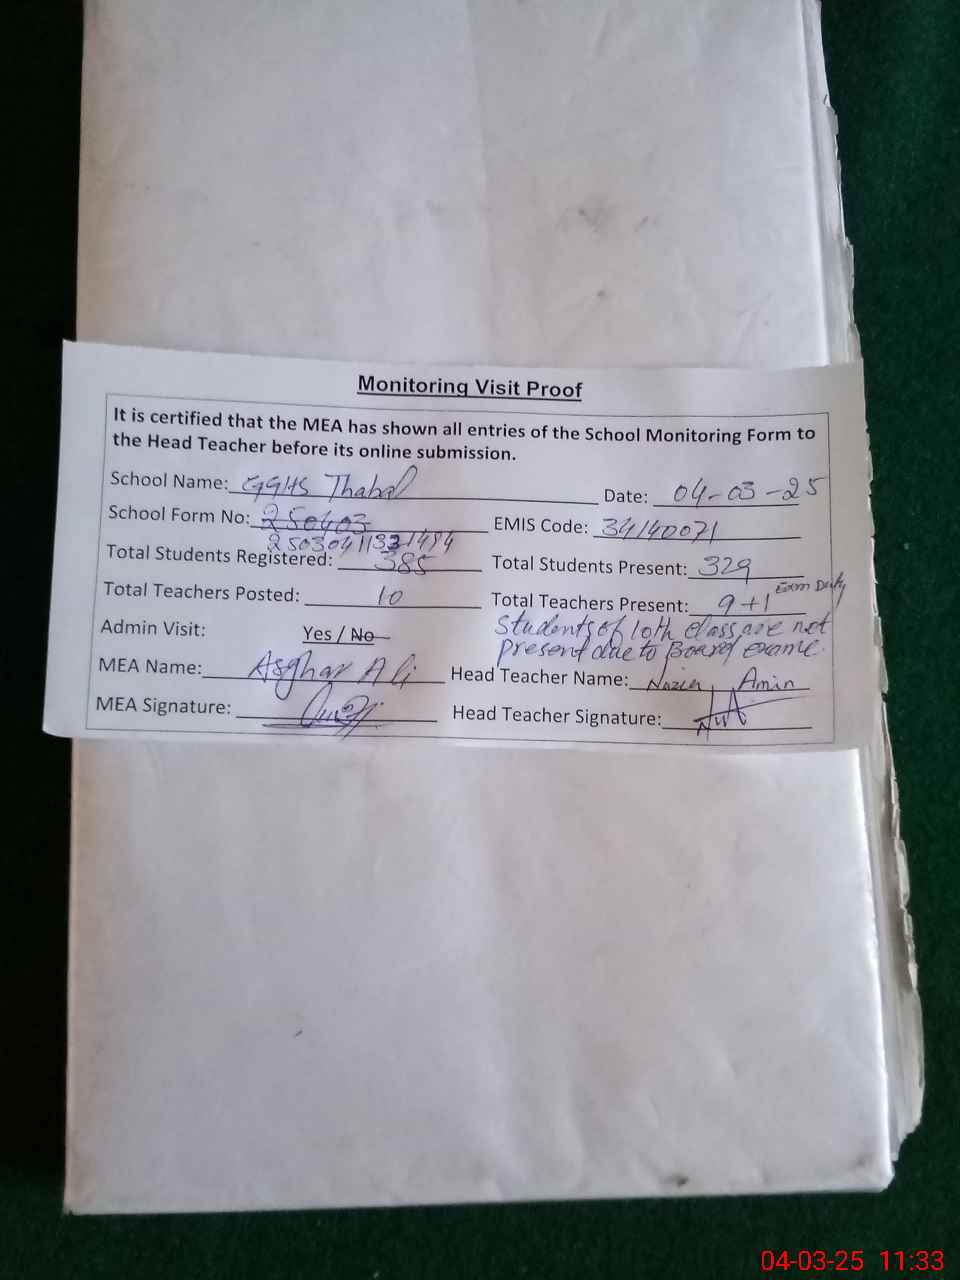 Monitoring Visit Proof
It is certified that the MEA has shown all entries of the School Monitoring Form to
the Head Teacher before its online submission.
School Name: GGHS Thabal Date: 04-03-25
School Form No: 250403 EMIS Code: 34140071
25030411331484
Total Students Registered: 385 Total Students Present: 329
Total Teachers Posted: 10 Total Teachers Present: 9+1 Exam Duty
Admin Visit: Yes / No Students of 10th class are not
present due to Board exame.
MEA Name: Asghar Ali Head Teacher Name: Amin
MEA Signature: Head Teacher Signature:
04-03-25 11:33